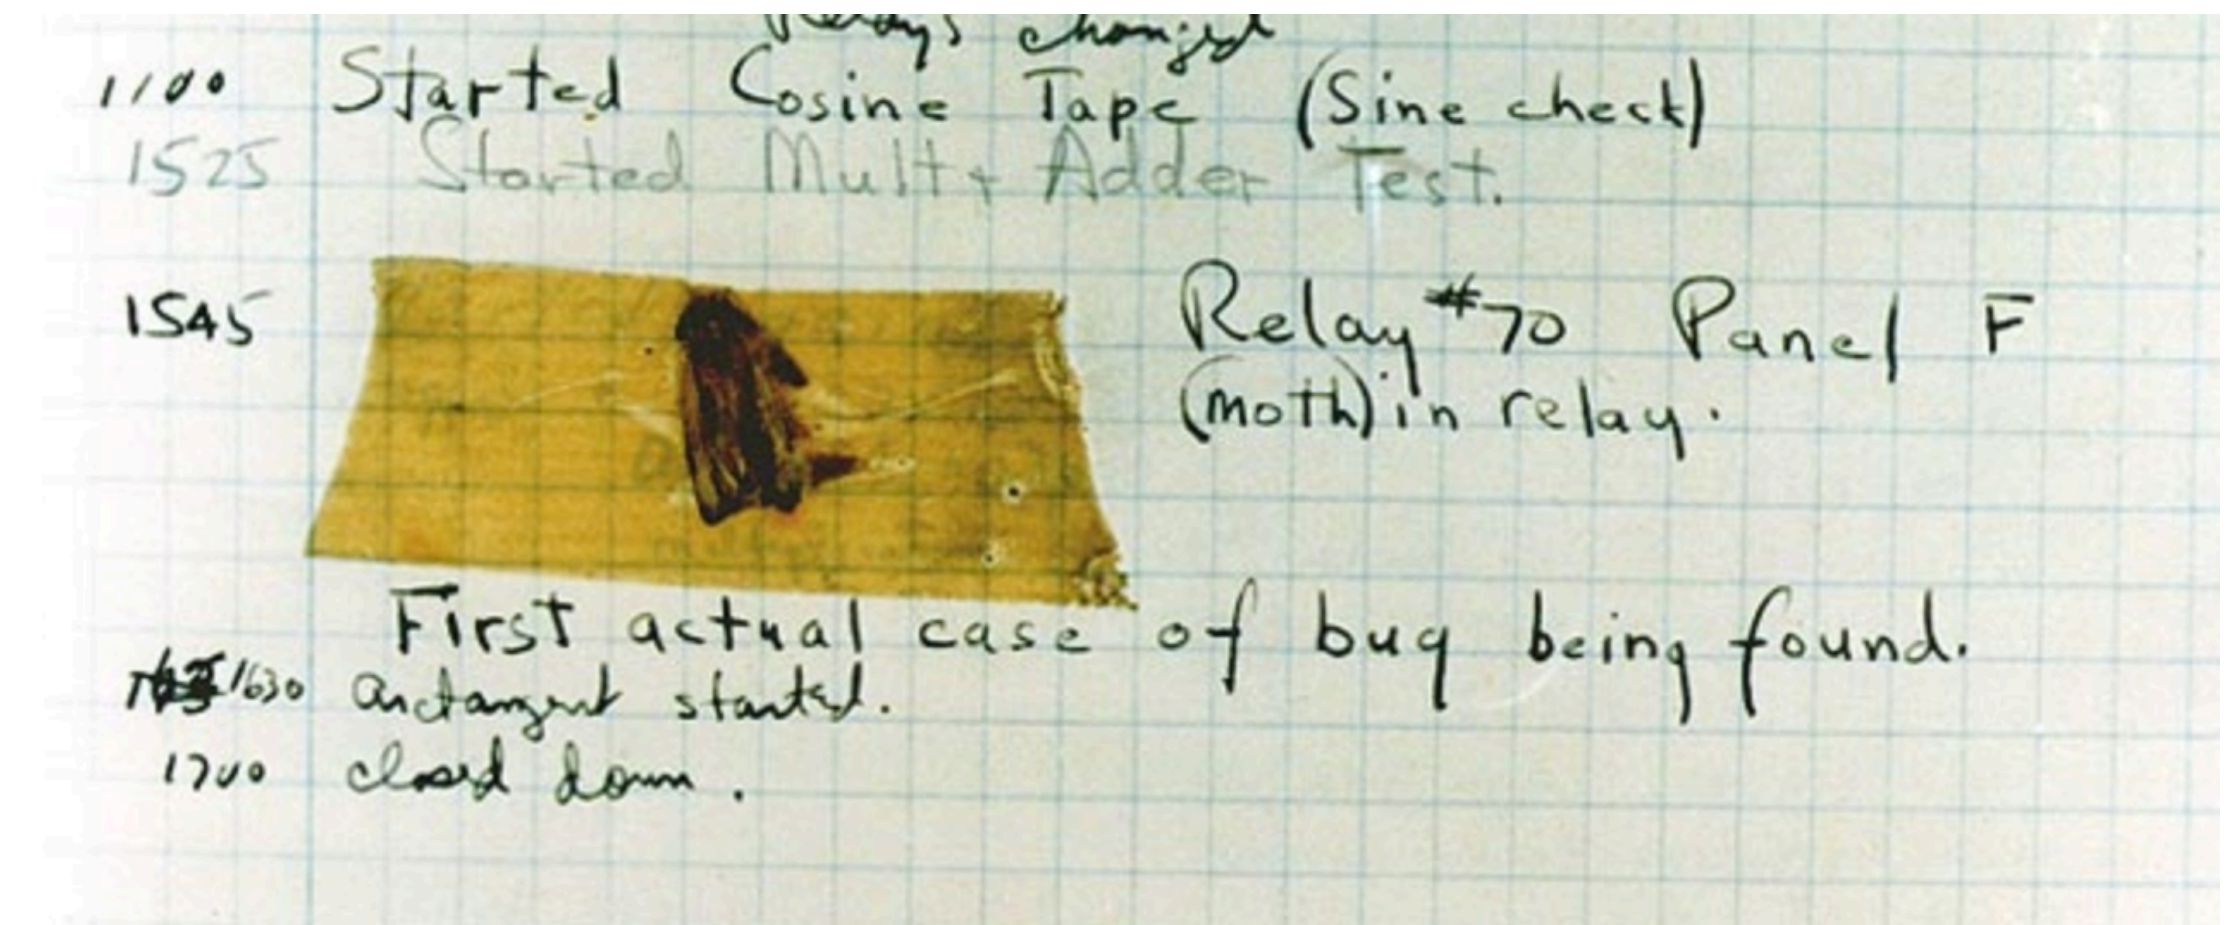 Relays changed
1100 Started Cosine Tape (Sine check)
1525 Started Mult+ Adder Test.
1545 Relay #70 Panel F
(moth) in relay.
First actual case of bug being found.
1630 arctangent started.
1700 closed down.